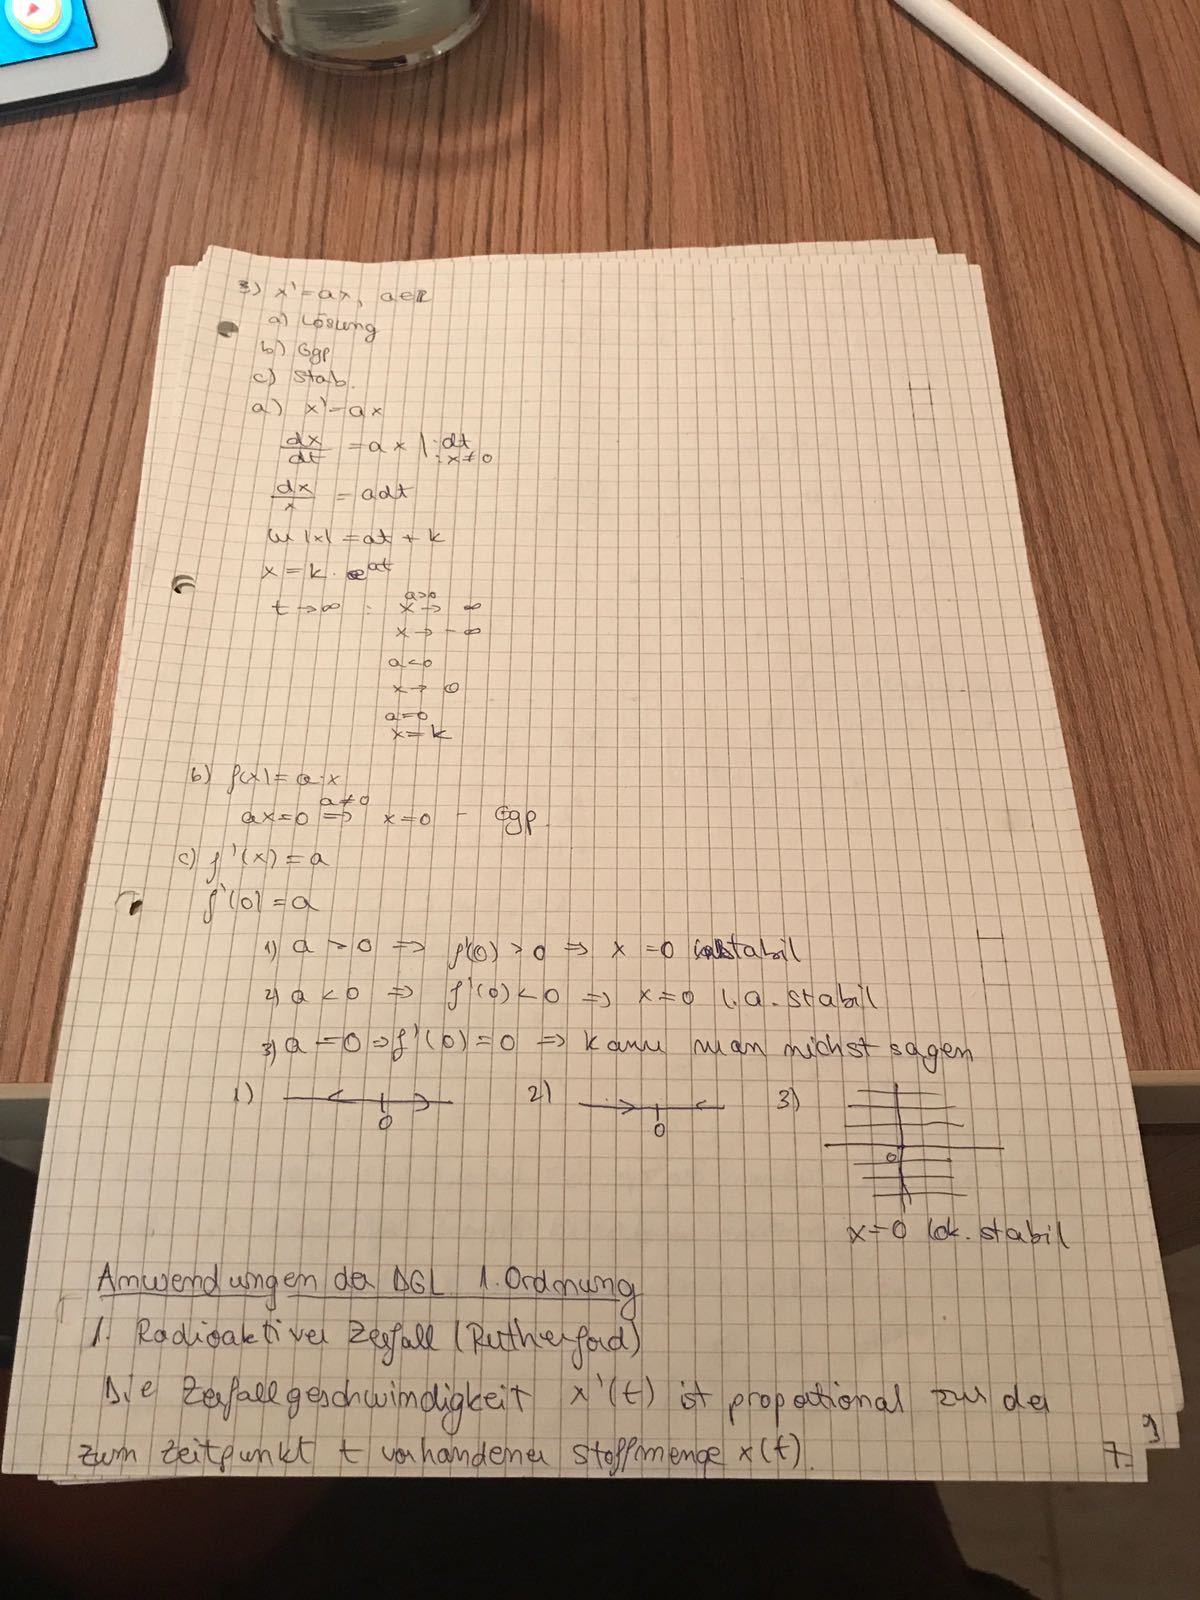 3) x' = ax, a∈ℝ
a) Lösung
b) Ggp
c) Stab.
a) x' = ax
dx/dt = ax | ·dt :x≠0
dx/x = adt
ln|x| = at + k
x = k · e^at
t→∞ : a>0 x→ ∞
x→ -∞
a<0
x→ 0
a=0
x=k
b) f(x) = a·x
ax=0 a≠0 ⇒ x=0 - Ggp.
c) f'(x) = a
f'(0) = a
1) a > 0 ⇒ f'(0) > 0 ⇒ x = 0 instabil
2) a < 0 ⇒ f'(0) < 0 ⇒ x=0 l.a. stabil
3) a = 0 ⇒ f'(0) = 0 ⇒ kann man nichst sagen
1) 0 2) 0 3) 0
x=0 lok. stabil
Anwendungen der DGL 1. Ordnung
1. Radioaktiver Zerfall (Rutherford)
Die Zerfallgeschwindigkeit x'(t) ist propotional zur der
zum Zeitpunkt t vorhandener Stoffmenge x(t).
7-
9